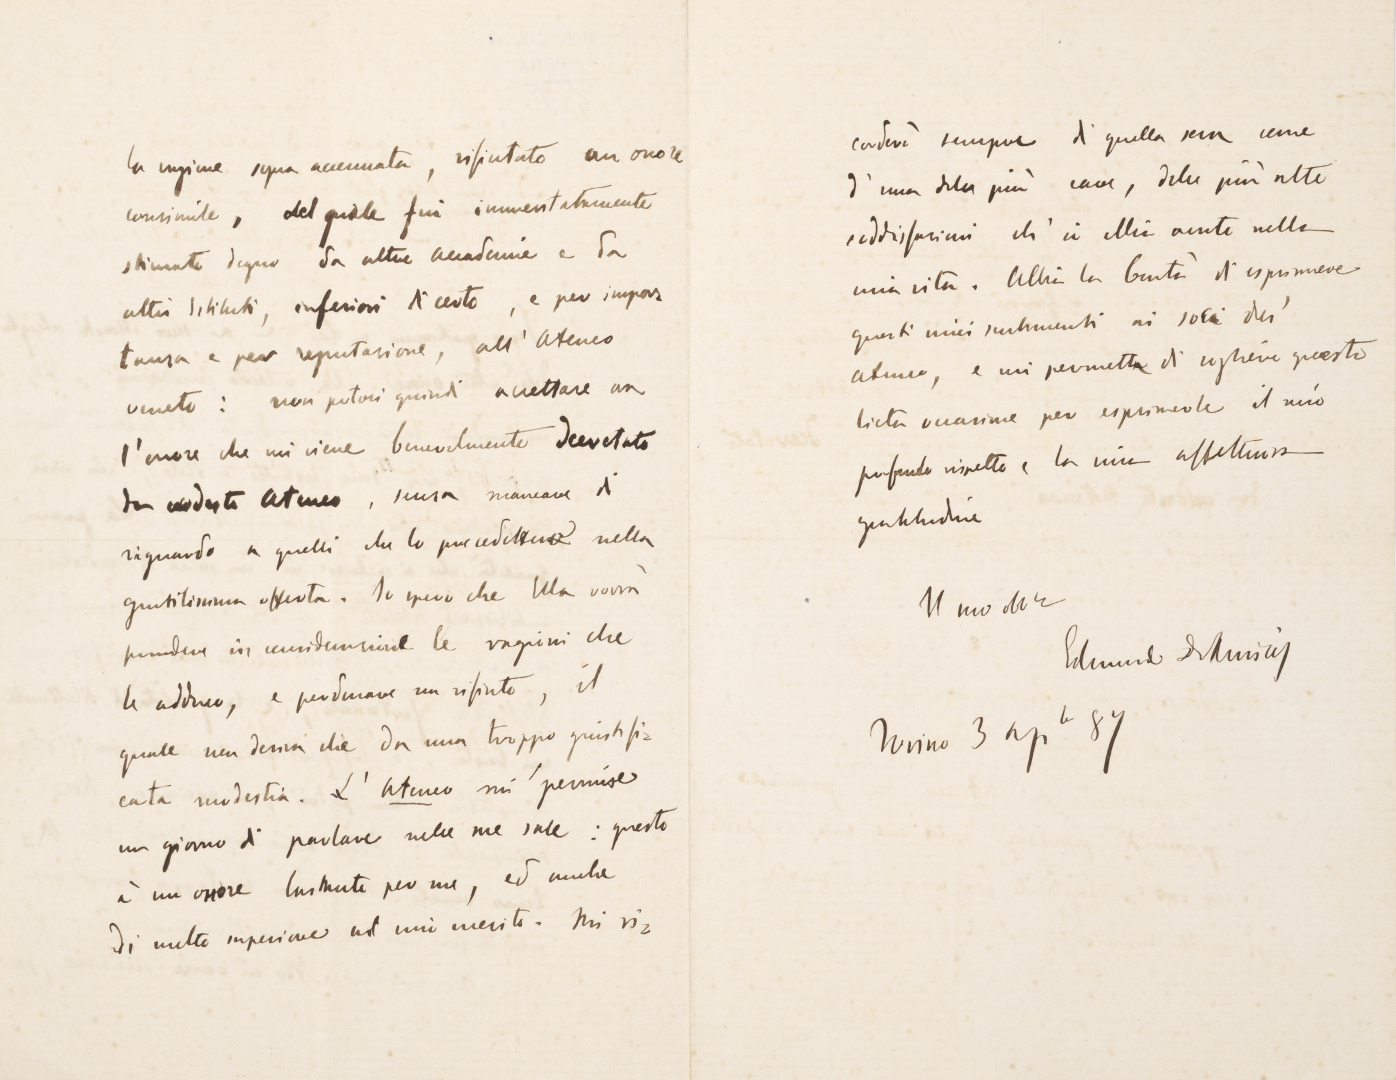 la ragione sopra accennata, rifiutato un onore
consimile, del quale fui immeritatamente
stimato degno da altre accademie e da
altri Istituti, inferiori di certo, e per impor=
tanza e per reputazione, all'Ateneo
veneto: non potrei quindi accettare ora
l'onore che mi viene benevolmente decretato
da codesto Ateneo, senza mancare di
riguardo a quelli che lo precedettero nella
gentilissima offerta. Io spero che Ella vorrà
prendere in considerazione le ragioni che
le adduco, e perdonare un rifiuto, il
quale non deriva che da una troppo giustifi=
cata modestia. L'Ateneo mi permise
un giorno di parlare nelle sue sale: questo
è un onore bastante per me, ed anche
di molto superiore al mio merito. Mi ri=
corderò sempre di quella sera come
d'una delle più care, delle più alte
soddisfazioni ch'io abbia avute nella
mia vita. Abbia la bontà di esprimere
questi miei sentimenti ai soci dell'
Ateneo, e mi permetta di cogliere questa
lieta occasione per esprimerle il mio
profondo rispetto e la mia affettuosa
gratitudine
Il suo
Edmondo De Amicis
Torino 3 ap 87